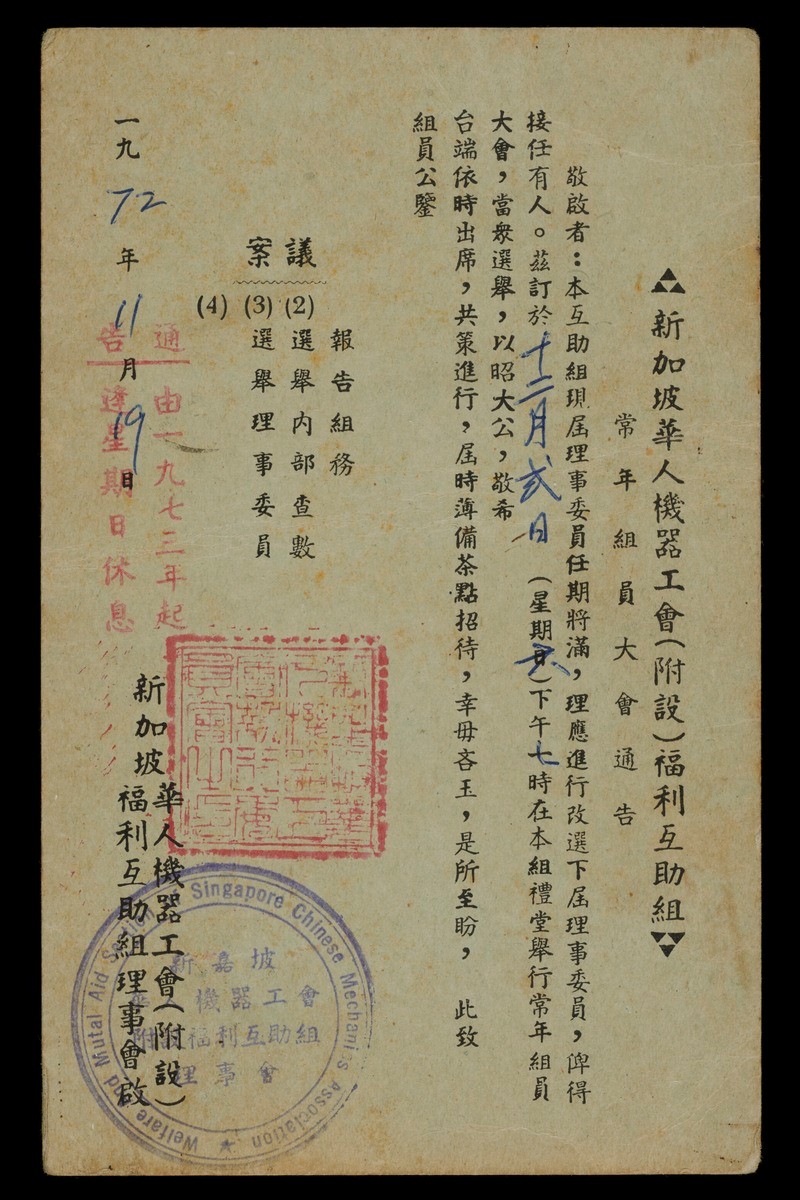 新加坡華人機器工會(附設)福利互助組
常年組員大會通告
敬啟者:本互助組現屆理事委員任期將滿,理應進行改選下屆理事委員,俾得
接任有人。茲訂於十二月弍日(星期六)下午七時在本組禮堂舉行常年組員
大會,當衆選舉,以昭大公,敬希
台端依時出席,共策進行,屆時薄備茶點招待,幸毋吝玉,是所至盼, 此致
組員公鑒
議案
報告組務
(2) 選舉內部查數
(3) 選舉理事委員
(4)
通由一九七三年起
告逢星期日休息
一九72年11月19日
新加坡華人機器工會(附設)
福利互助組理事會啟
Singapore Chinese Mechanic's Association
Welfare and Mutal Aid
新嘉坡
機器工會
附 福利互助組
理事會